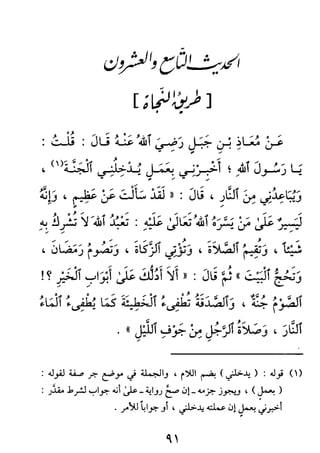 الحديث التاسع والعشرون
[ طريق النجاة ]
عَنْ مُعَاذِ بْنِ جَبَلٍ رَضِيَ ٱللهُ عَنْهُ قَالَ : قُلْتُ :
يَا رَسُولَ ٱللهِ ؛ أَخْبِرْنِي بِعَمَلٍ يُدْخِلُنِي ٱلْجَنَّةَ(١) ،
وَيُبَاعِدُنِي مِنَ ٱلنَّارِ ، قَالَ : « لَقَدْ سَأَلْتَ عَنْ عَظِيمٍ ، وَإِنَّهُ
لَيَسِيرٌ عَلَىٰ مَنْ يَسَّرَهُ ٱللهُ تَعَالَىٰ عَلَيْهِ : تَعْبُدُ ٱللهَ لاَ تُشْرِكُ بِهِ
شَيْئاً ، وَتُقِيمُ ٱلصَّلاَةَ ، وَتُؤْتِي ٱلزَّكَاةَ ، وَتَصُومُ رَمَضَانَ ،
وَتَحُجُّ ٱلْبَيْتَ » ثُمَّ قَالَ : « أَلاَ أَدُلُّكَ عَلَىٰ أَبْوَابِ ٱلْخَيْرِ ؟!
ٱلصَّوْمُ جُنَّةٌ ، وَٱلصَّدَقَةُ تُطْفِىءُ ٱلْخَطِيئَةَ كَمَا يُطْفِىءُ ٱلْمَاءُ
ٱلنَّارَ ، وَصَلاَةُ ٱلرَّجُلِ مِنْ جَوْفِ ٱللَّيْلِ » .
(١) قوله : ( يدخلني ) بضم اللام ، والجملة في موضع جر صفة لقوله :
( بعملٍ ) ، ويجوز جزمه ـ إن صحَّ رواية ـ على أنه جواب لشرط مقدَّر :
أخبرني بعملٍ إن عملته يدخلني ، أو جواباً للأمر .
٩١